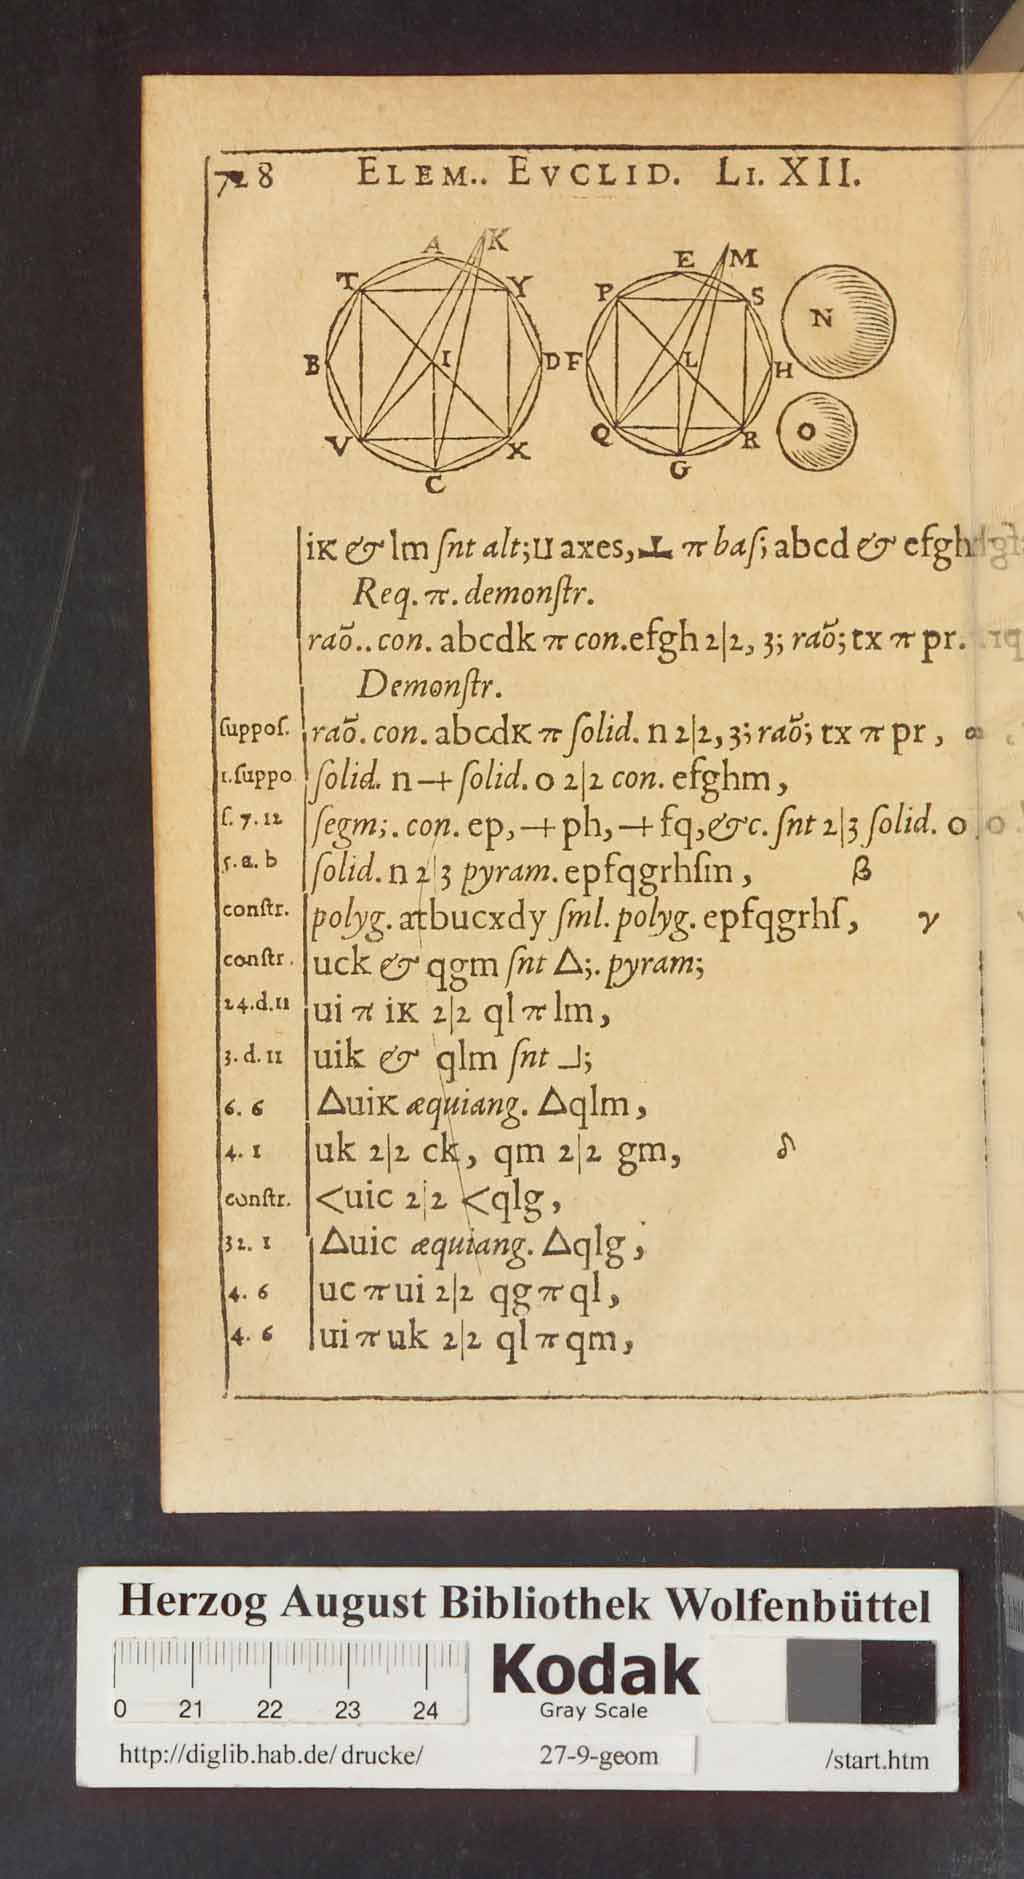 728 ELEM.. EVCLID. LI. XII.
A K E M
T Y P S N
B I D F L H
V X Q R O
C G
iK & lm ſnt alt; u axes, ⊥ π baſ; abcd & efgh
Req. π. demonſtr.
raõ.. con. abcdk π con. efgh 2|2, 3; raõ; tx π pr.
Demonſtr.
ſuppoſ. raõ. con. abcdK π ſolid. n 2|2, 3; raõ; tx π pr, α
1. ſuppo ſolid. n -+ ſolid. o 2|2 con. efghm,
ſ. 7. 12 ſegm;. con. ep, -+ ph, -+ fq, &c. ſnt 2|3 ſolid. o
5. a. b ſolid. n 2|3 pyram. epfqgrhſm, β
conſtr. polyg. atbucxdy ſml. polyg. epfqgrhſ, γ
conſtr. uck & qgm ſnt Δ;. pyram;
24. d. 11 ui π iK 2|2 ql π lm,
3. d. 11 uik & qlm ſnt ⅃;
6. 6 ΔuiK æquiang. Δqlm,
4. 1 uk 2|2 ck, qm 2|2 gm, δ
conſtr. <uic 2|2 <qlg,
32. 1 Δuic æquiang. Δqlg,
4. 6 uc π ui 2|2 qg π ql,
4. 6 ui π uk 2|2 ql π qm,
Herzog August Bibliothek Wolfenbüttel
Kodak
Gray Scale
0 21 22 23 24
http://diglib.hab.de/drucke/ 27-9-geom /start.htm